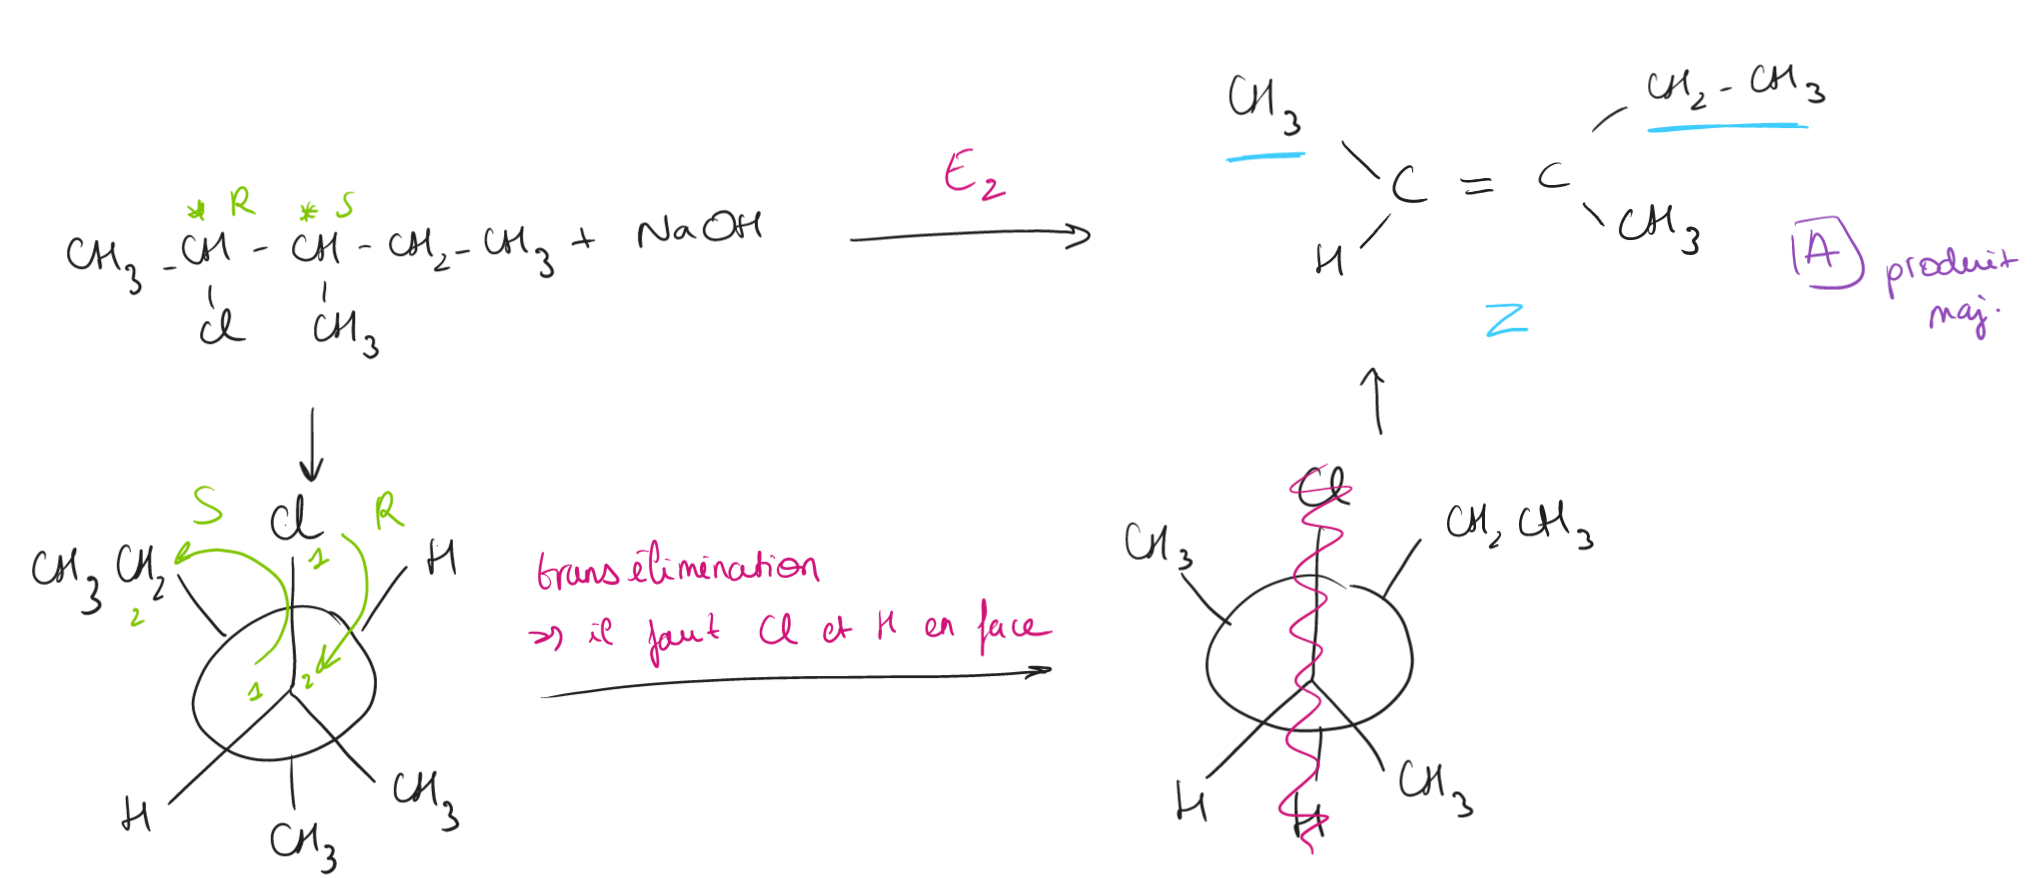 * R * S
CH3 - CH - CH - CH2 - CH3 + NaOH
Cl CH3
E2
CH3 CH2 - CH3
C = C
H CH3
Z
A produit
maj.
S Cl R
CH3 CH2 1 H
2
1 2
H CH3
CH3
trans élimination
=> il faut Cl et H en face
Cl
CH3 CH2 CH3
H H CH3